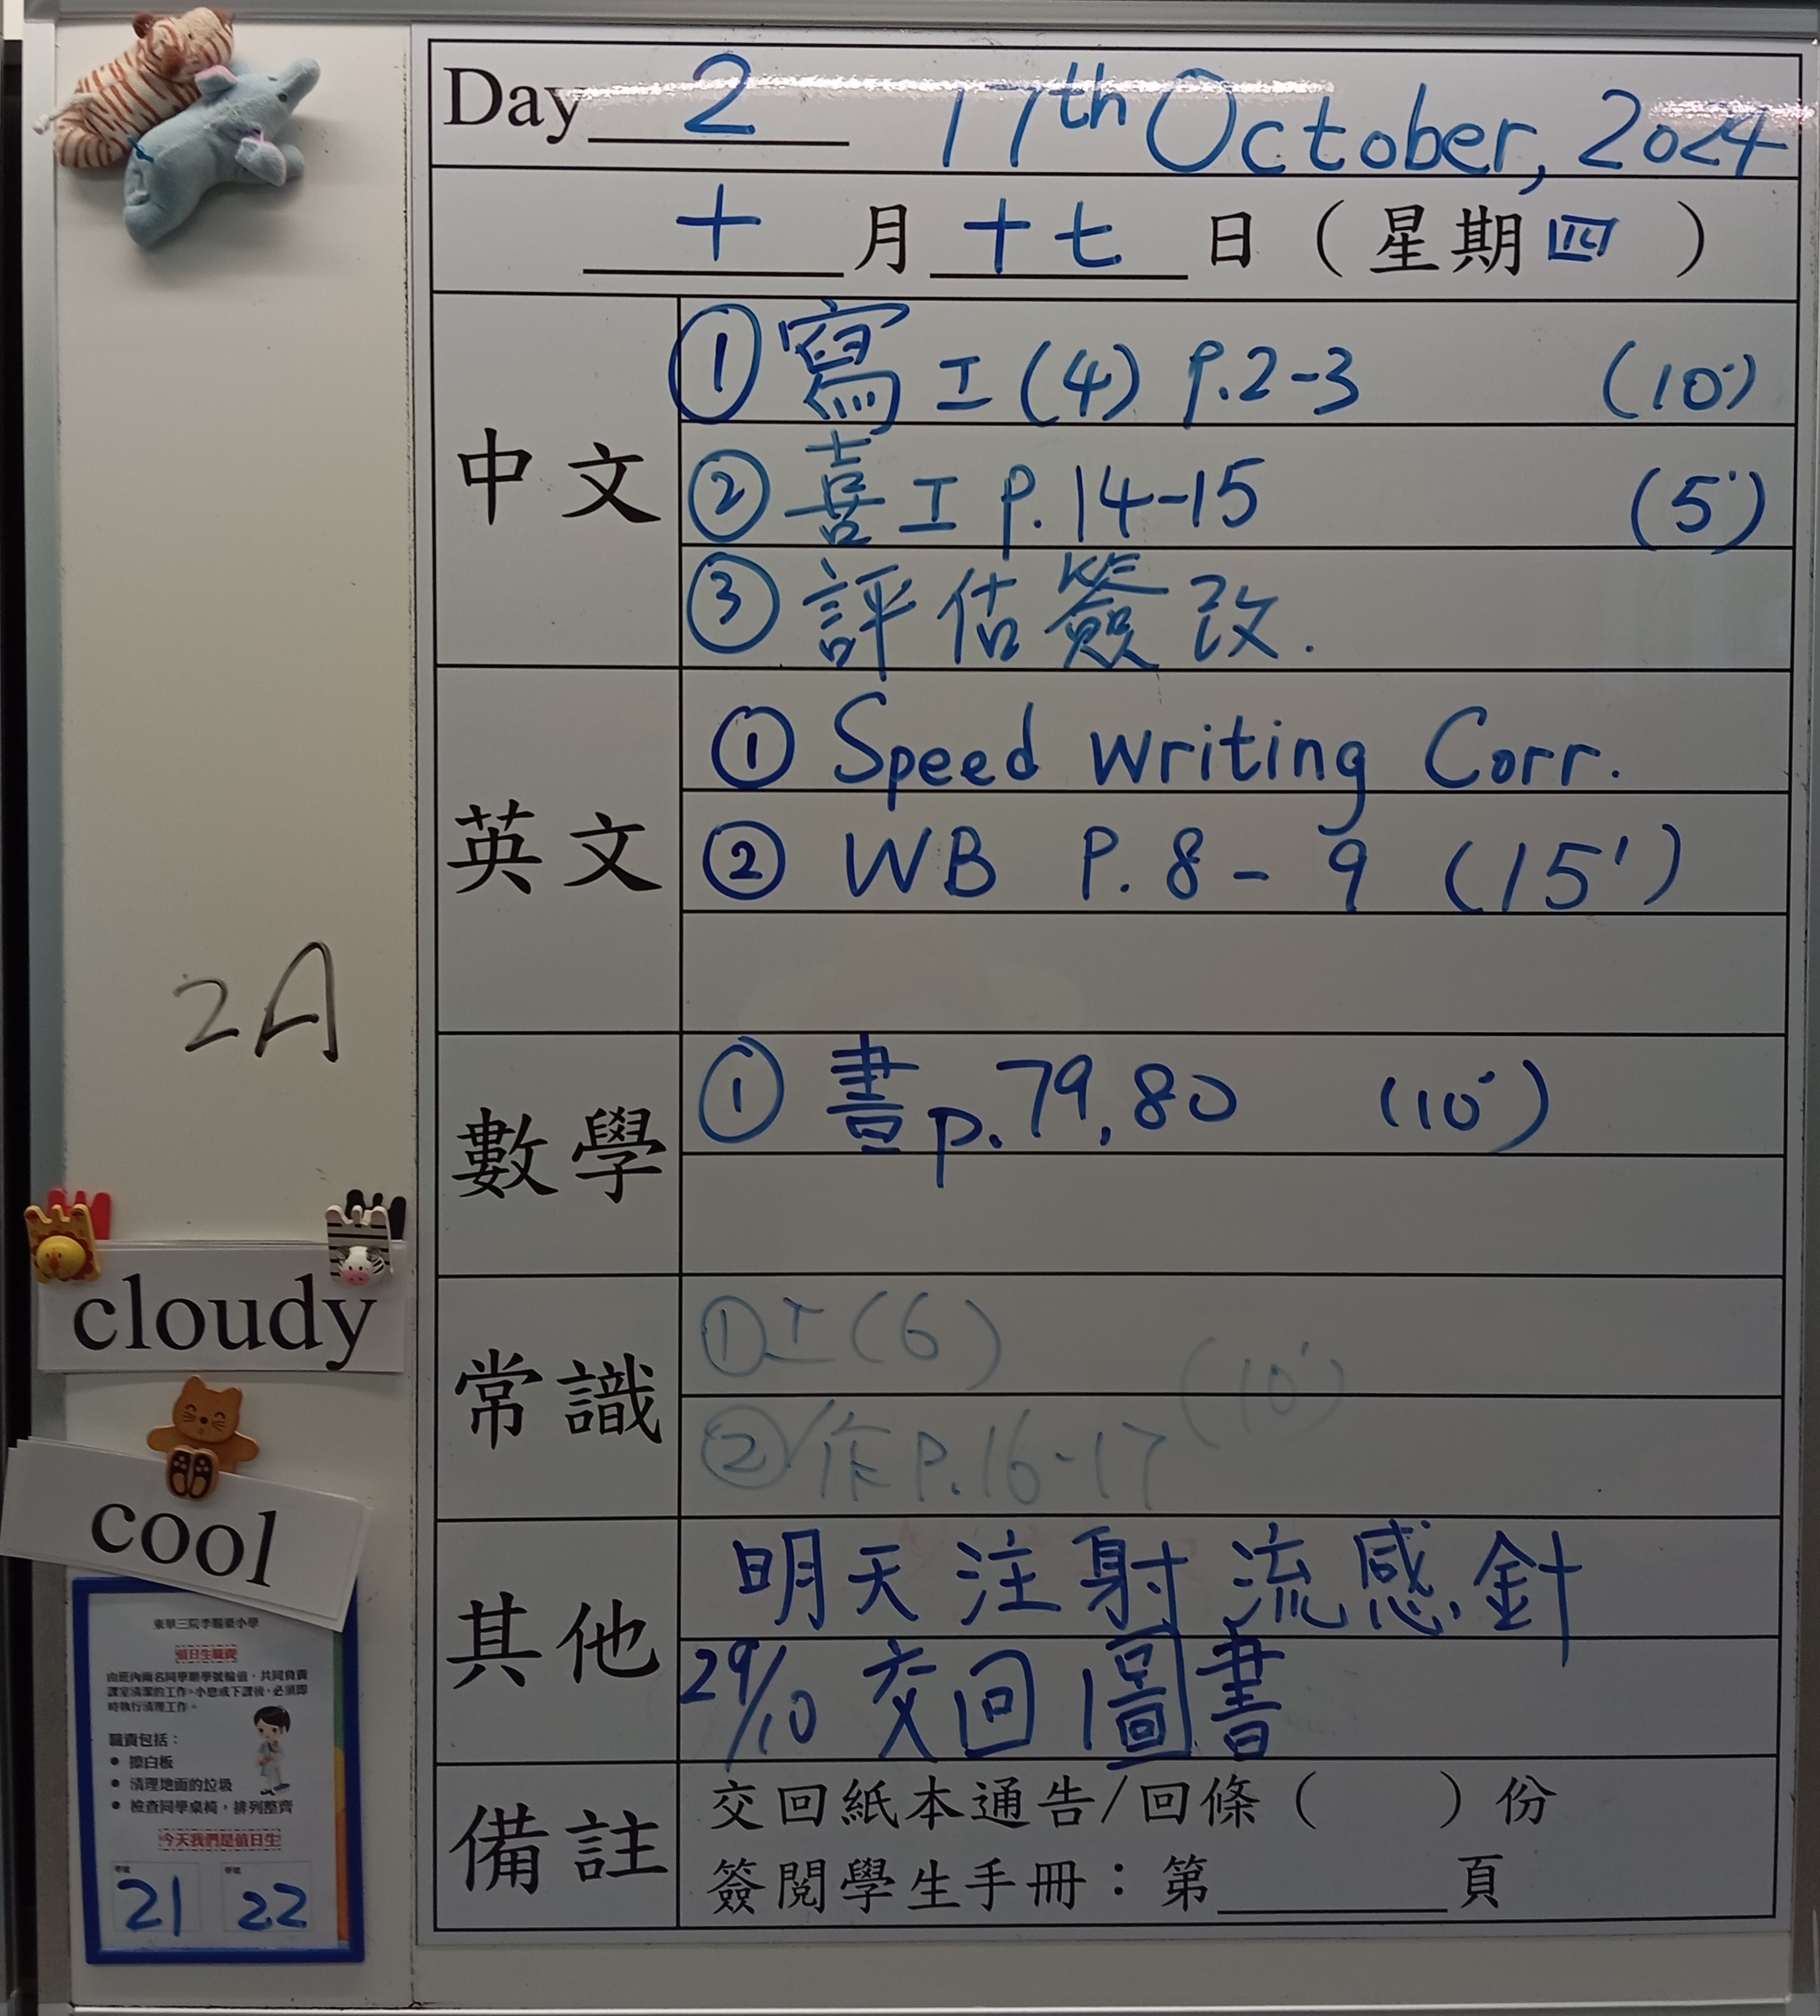 Day 2 17th October, 2024
十 月 十七 日 ( 星期 四 )
中文
① 寫工(4) p.2-3 (10')
② 喜工 p.14-15 (5')
③ 評估簽改.
英文
① Speed writing Corr.
② WB P.8-9 (15')
數學
① 書p.79,80 (10')
常識
① 工(6)
(10')
② 作P.16-17
其他
明天注射流感針
29/10 交回圖書
備註
交回紙本通告/回條( )份
簽閱學生手冊：第______頁
2A
cloudy
cool
值日生職責
由班內兩名同學順學號輪值，共同負責
課室清潔的工作。小息或下課後，必須即
時執行清理工作。
職責包括：
• 擦白板
• 清理地面的垃圾
• 檢查同學桌椅，排列整齊
今天我們是值日生
學號 學號
21 22